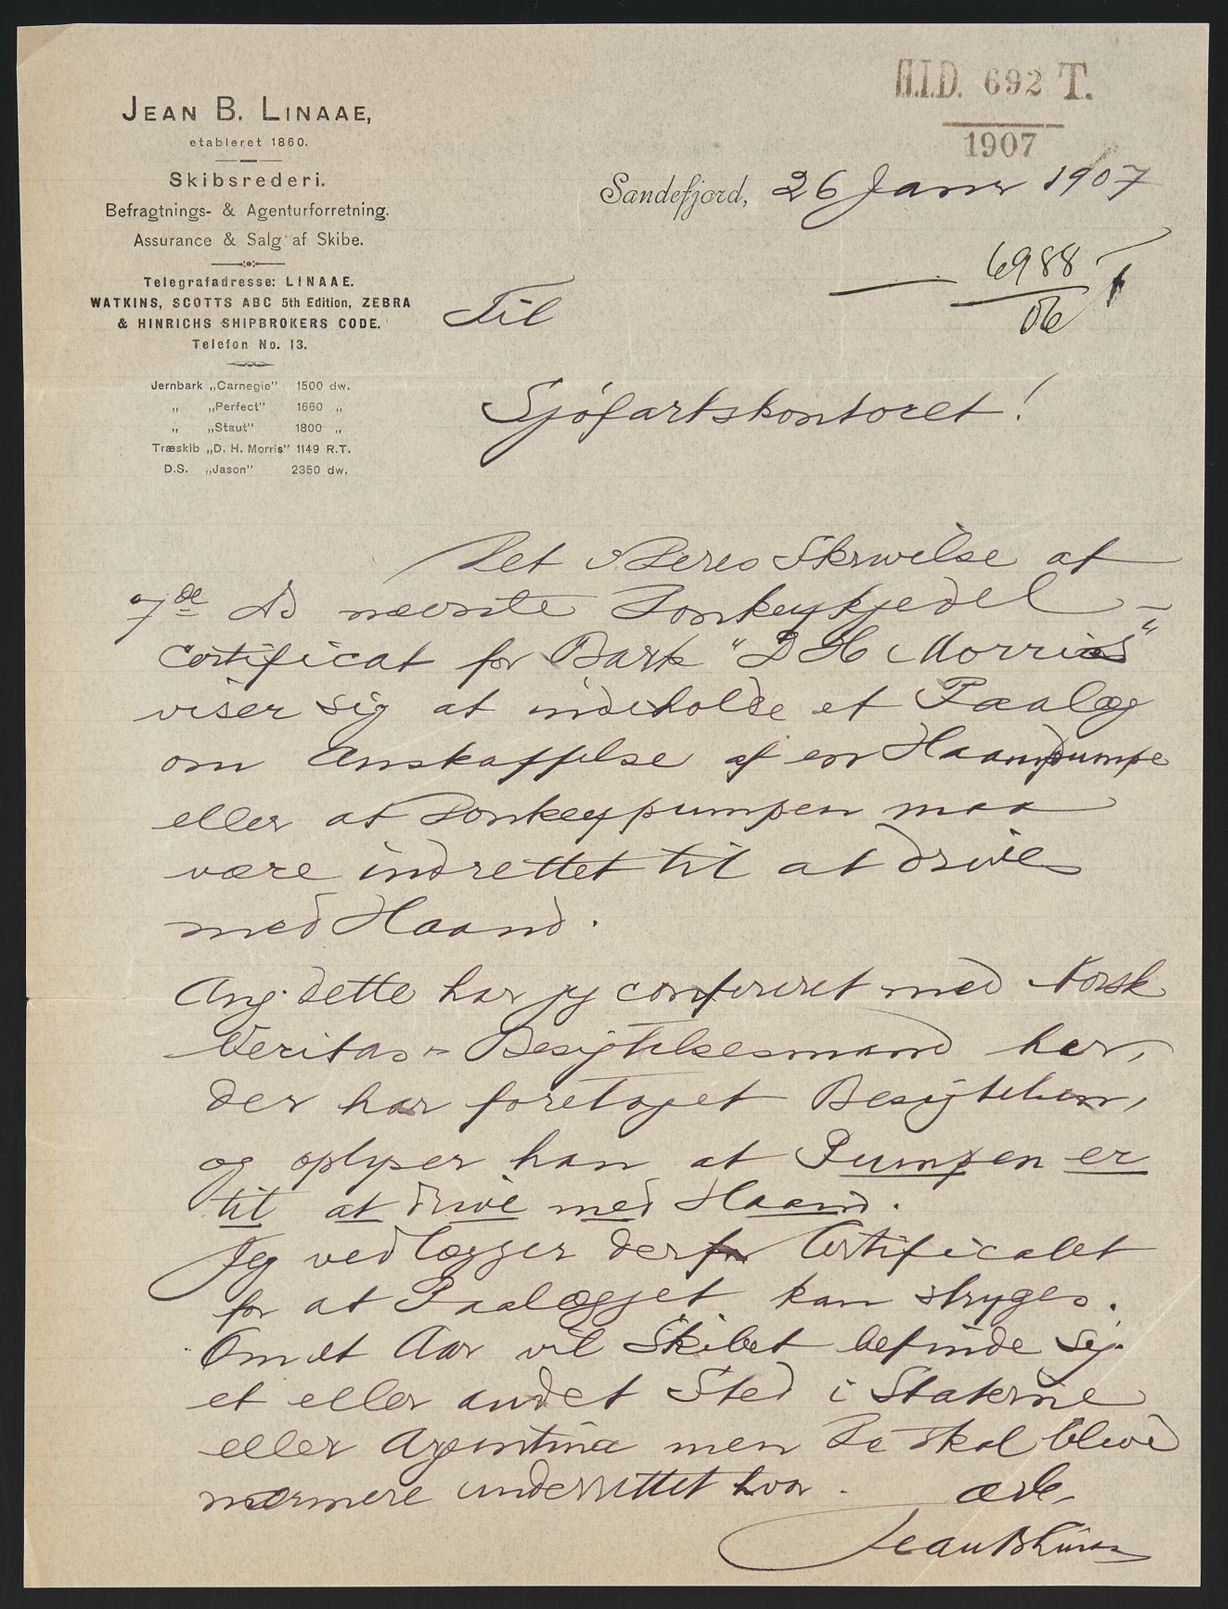 JEAN B. LINAAE,
etableret 1860.
Skibsrederi.
Befragtnings- & Agenturforretning.
Assurance & Salg af Skibe.
Telegrafadresse: LINAAE.
WATKINS, SCOTTS ABC 5th Edition, ZEBRA
& HINRICHS SHIPBROKERS CODE.
Telefon No. 13.
Jernbark „Carnegie" 1500 dw.
„ „Perfect" 1660 „
„ „Staut" 1800 „
Træskib „D. H. Morris" 1149 R.T.
D.S. „Jason" 2350 dw.
H.I.D. 692 T.
1907
Sandefjord, 26 Janr 1907
6988
06
Til
Sjöfartskontoret!
Det i Deres Skrivelse af
7de ds nævnte Donkeykjedel-
certificat for Bark "D H Morris"
viser sig at indeholde et Paalæg
om Anskaffelse af en Haandpumpe
eller at Donkeypumpen maa
være indrettet til at drives
med Haand.
Ang. dette har jeg confereret med Norsk
Veritas's Besigtelsesmand her,
der har foretaget Besigtelsen,
og oplyser han at Pumpen er
til at drive med Haand.
Jeg vedlægger derfor Certificatet
for at Paalægget kan stryges.
Om et Aar vil Skibet befinde sig
et eller andet Sted i Staterne
eller Argentina men De skal blive
nærmere underrettet hvor.
ærb.
Jean B Linaae